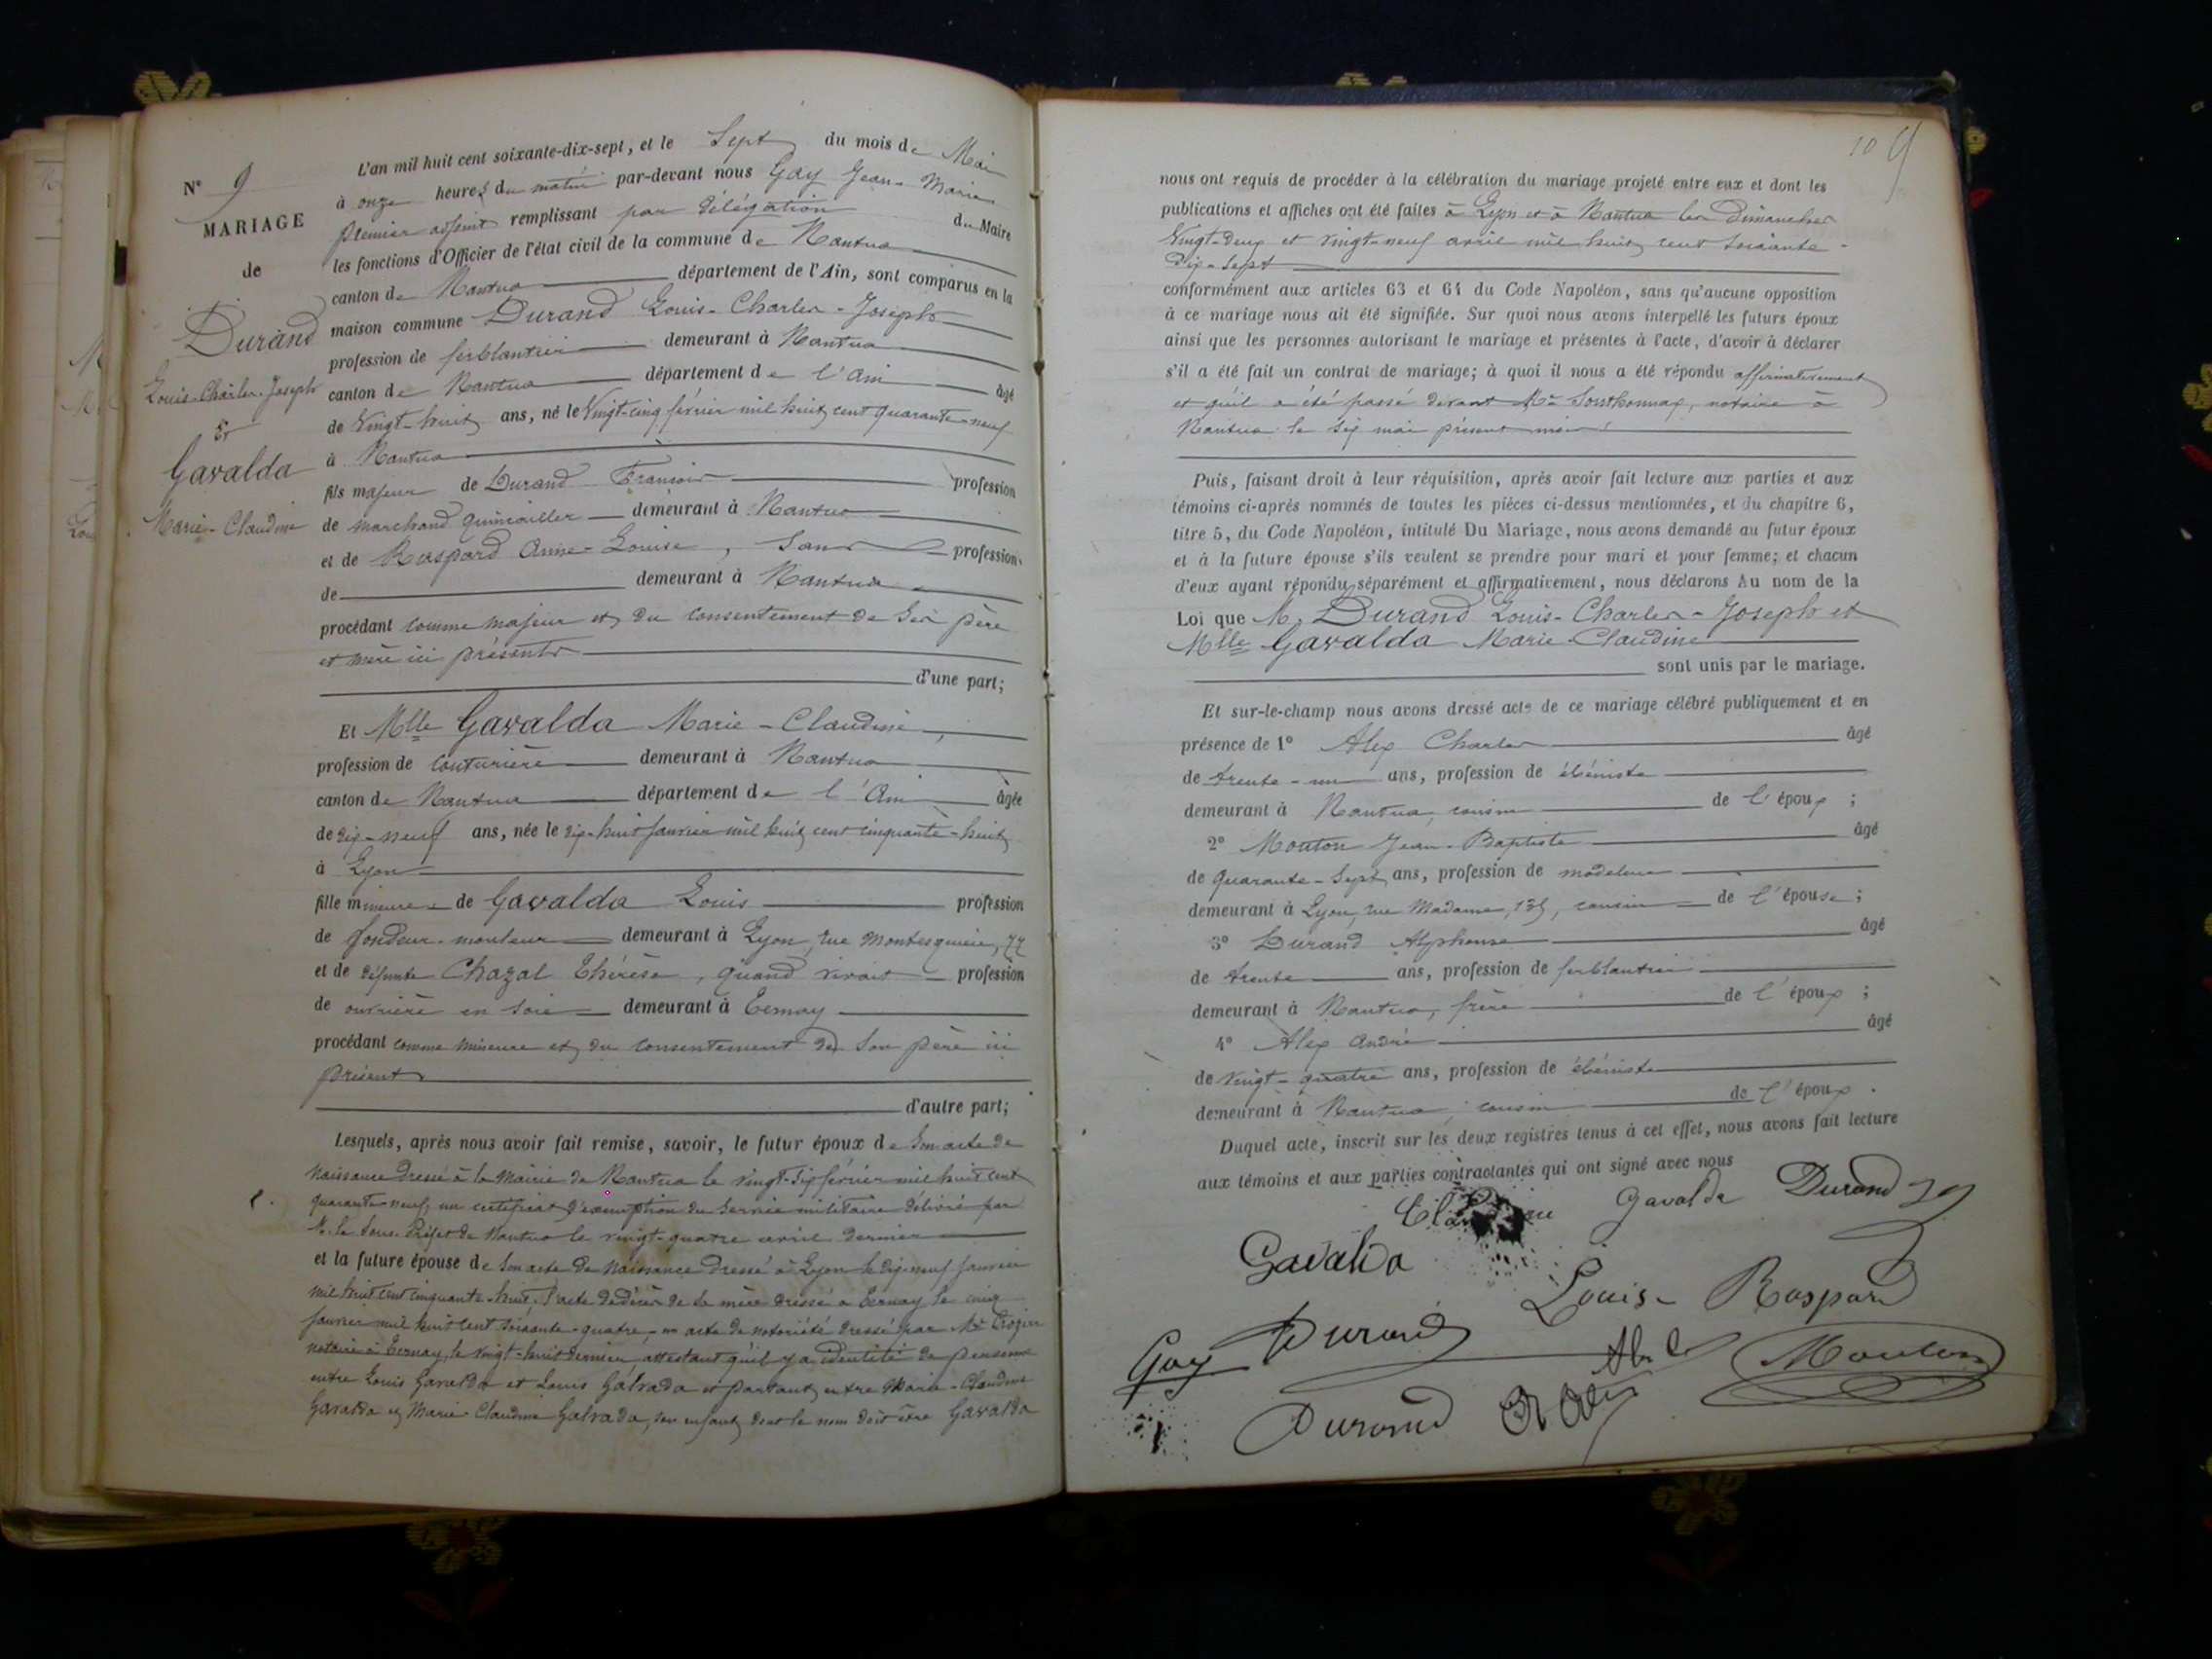 N° 9
MARIAGE
de
Durand
Louis-Charles-Joseph
Et
Gavalda
Marie-Claudine
L'an mil huit cent soixante-dix-sept, et le Sept du mois de Mai
à onze heures du matin par-devant nous Gay Jean-Marie
premier adjoint remplissant par délégation du Maire
les fonctions d'Officier de l'état civil de la commune de Nantua
canton de Nantua département de l'Ain, sont comparus en la
maison commune Durand Louis-Charles-Joseph
profession de ferblantier demeurant à Nantua
canton de Nantua département de l'Ain âgé
de Vingt-huit ans, né le Vingt-cinq février mil huit cent quarante-neuf
à Nantua
fils majeur de Durand François profession
de marchand quincailler demeurant à Nantua
et de Raspard Anne-Louise, sans profession
de demeurant à Nantua
procédant comme majeur et du consentement de ses père
et mère ici présents
d'une part;
Et Mlle Gavalda Marie-Claudine,
profession de couturière demeurant à Nantua
canton de Nantua département de l'Ain âgée
de dix-neuf ans, née le dix-huit janvier mil huit cent cinquante-huit
à Lyon
fille mineure de Gavalda Louis profession
de fondeur-mouleur demeurant à Lyon, rue Montesquieu, 77
et de défunte Chazal Thérèse, quand vivait profession
de ouvrière en soie demeurant à Ternay
procédant comme mineure et du consentement de son père ici
présent
d'autre part;
Lesquels, après nous avoir fait remise, savoir, le futur époux de Son acte de
naissance dressé à la Mairie de Nantua le vingt-six février mil huit cent
quarante-neuf, un certificat d'exemption du service militaire délivré par
M. le Sous-Préfet de Nantua le vingt-quatre avril dernier
et la future épouse de Son acte de naissance dressé à Lyon le dix-neuf janvier
mil huit cent cinquante-huit, l'acte de décès de sa mère dressé à Ternay le cinq
janvier mil huit cent soixante-quatre, un acte de notoriété dressé par Me
notaire à Ternay, le vingt-huit dernier, attestant qu'il y a identité de personne
entre Louis Gavalda et Louis Galvada et partant entre Marie-Claudine
Gavalda et Marie-Claudine Galvada, son enfant dont le nom doit être Gavalda
109
nous ont requis de procéder à la célébration du mariage projeté entre eux et dont les
publications et affiches ont été faites à Lyon et à Nantua les Dimanches
Vingt-deux et vingt-neuf avril mil huit cent soixante-
dix-sept
conformément aux articles 63 et 64 du Code Napoléon, sans qu'aucune opposition
à ce mariage nous ait été signifiée. Sur quoi nous avons interpellé les futurs époux
ainsi que les personnes autorisant le mariage et présentes à l'acte, d'avoir à déclarer
s'il a été fait un contrat de mariage; à quoi il nous a été répondu affirmativement
et qu'il a été passé devant Me Southonnax, notaire à
Nantua le six mai présent mois
Puis, faisant droit à leur réquisition, après avoir fait lecture aux parties et aux
témoins ci-après nommés de toutes les pièces ci-dessus mentionnées, et du chapitre 6,
titre 5, du Code Napoléon, intitulé Du Mariage, nous avons demandé au futur époux
et à la future épouse s'ils veulent se prendre pour mari et pour femme; et chacun
d'eux ayant répondu séparément et affirmativement, nous déclarons Au nom de la
Loi que M. Durand Louis-Charles-Joseph et
Mlle Gavalda Marie-Claudine
sont unis par le mariage.
Et sur-le-champ nous avons dressé acte de ce mariage célébré publiquement et en
présence de 1° Alex Charles âgé
de trente-un ans, profession de ébéniste
demeurant à Nantua, cousin de l'époux;
2° Mouton Jean-Baptiste âgé
de quarante-sept ans, profession de modeleur
demeurant à Lyon, rue Madame, 135, cousin de l'épouse;
3° Durand Alphonse âgé
de trente ans, profession de ferblantier
demeurant à Nantua, frère de l'époux;
4° Alex André âgé
de vingt-quatre ans, profession de ébéniste
demeurant à Nantua, cousin de l'époux.
Duquel acte, inscrit sur les deux registres tenus à cet effet, nous avons fait lecture
aux témoins et aux parties contractantes qui ont signé avec nous
Gavalda Durand
Gavalda
Louise Raspard
Gay Durand
Mouton
Durand